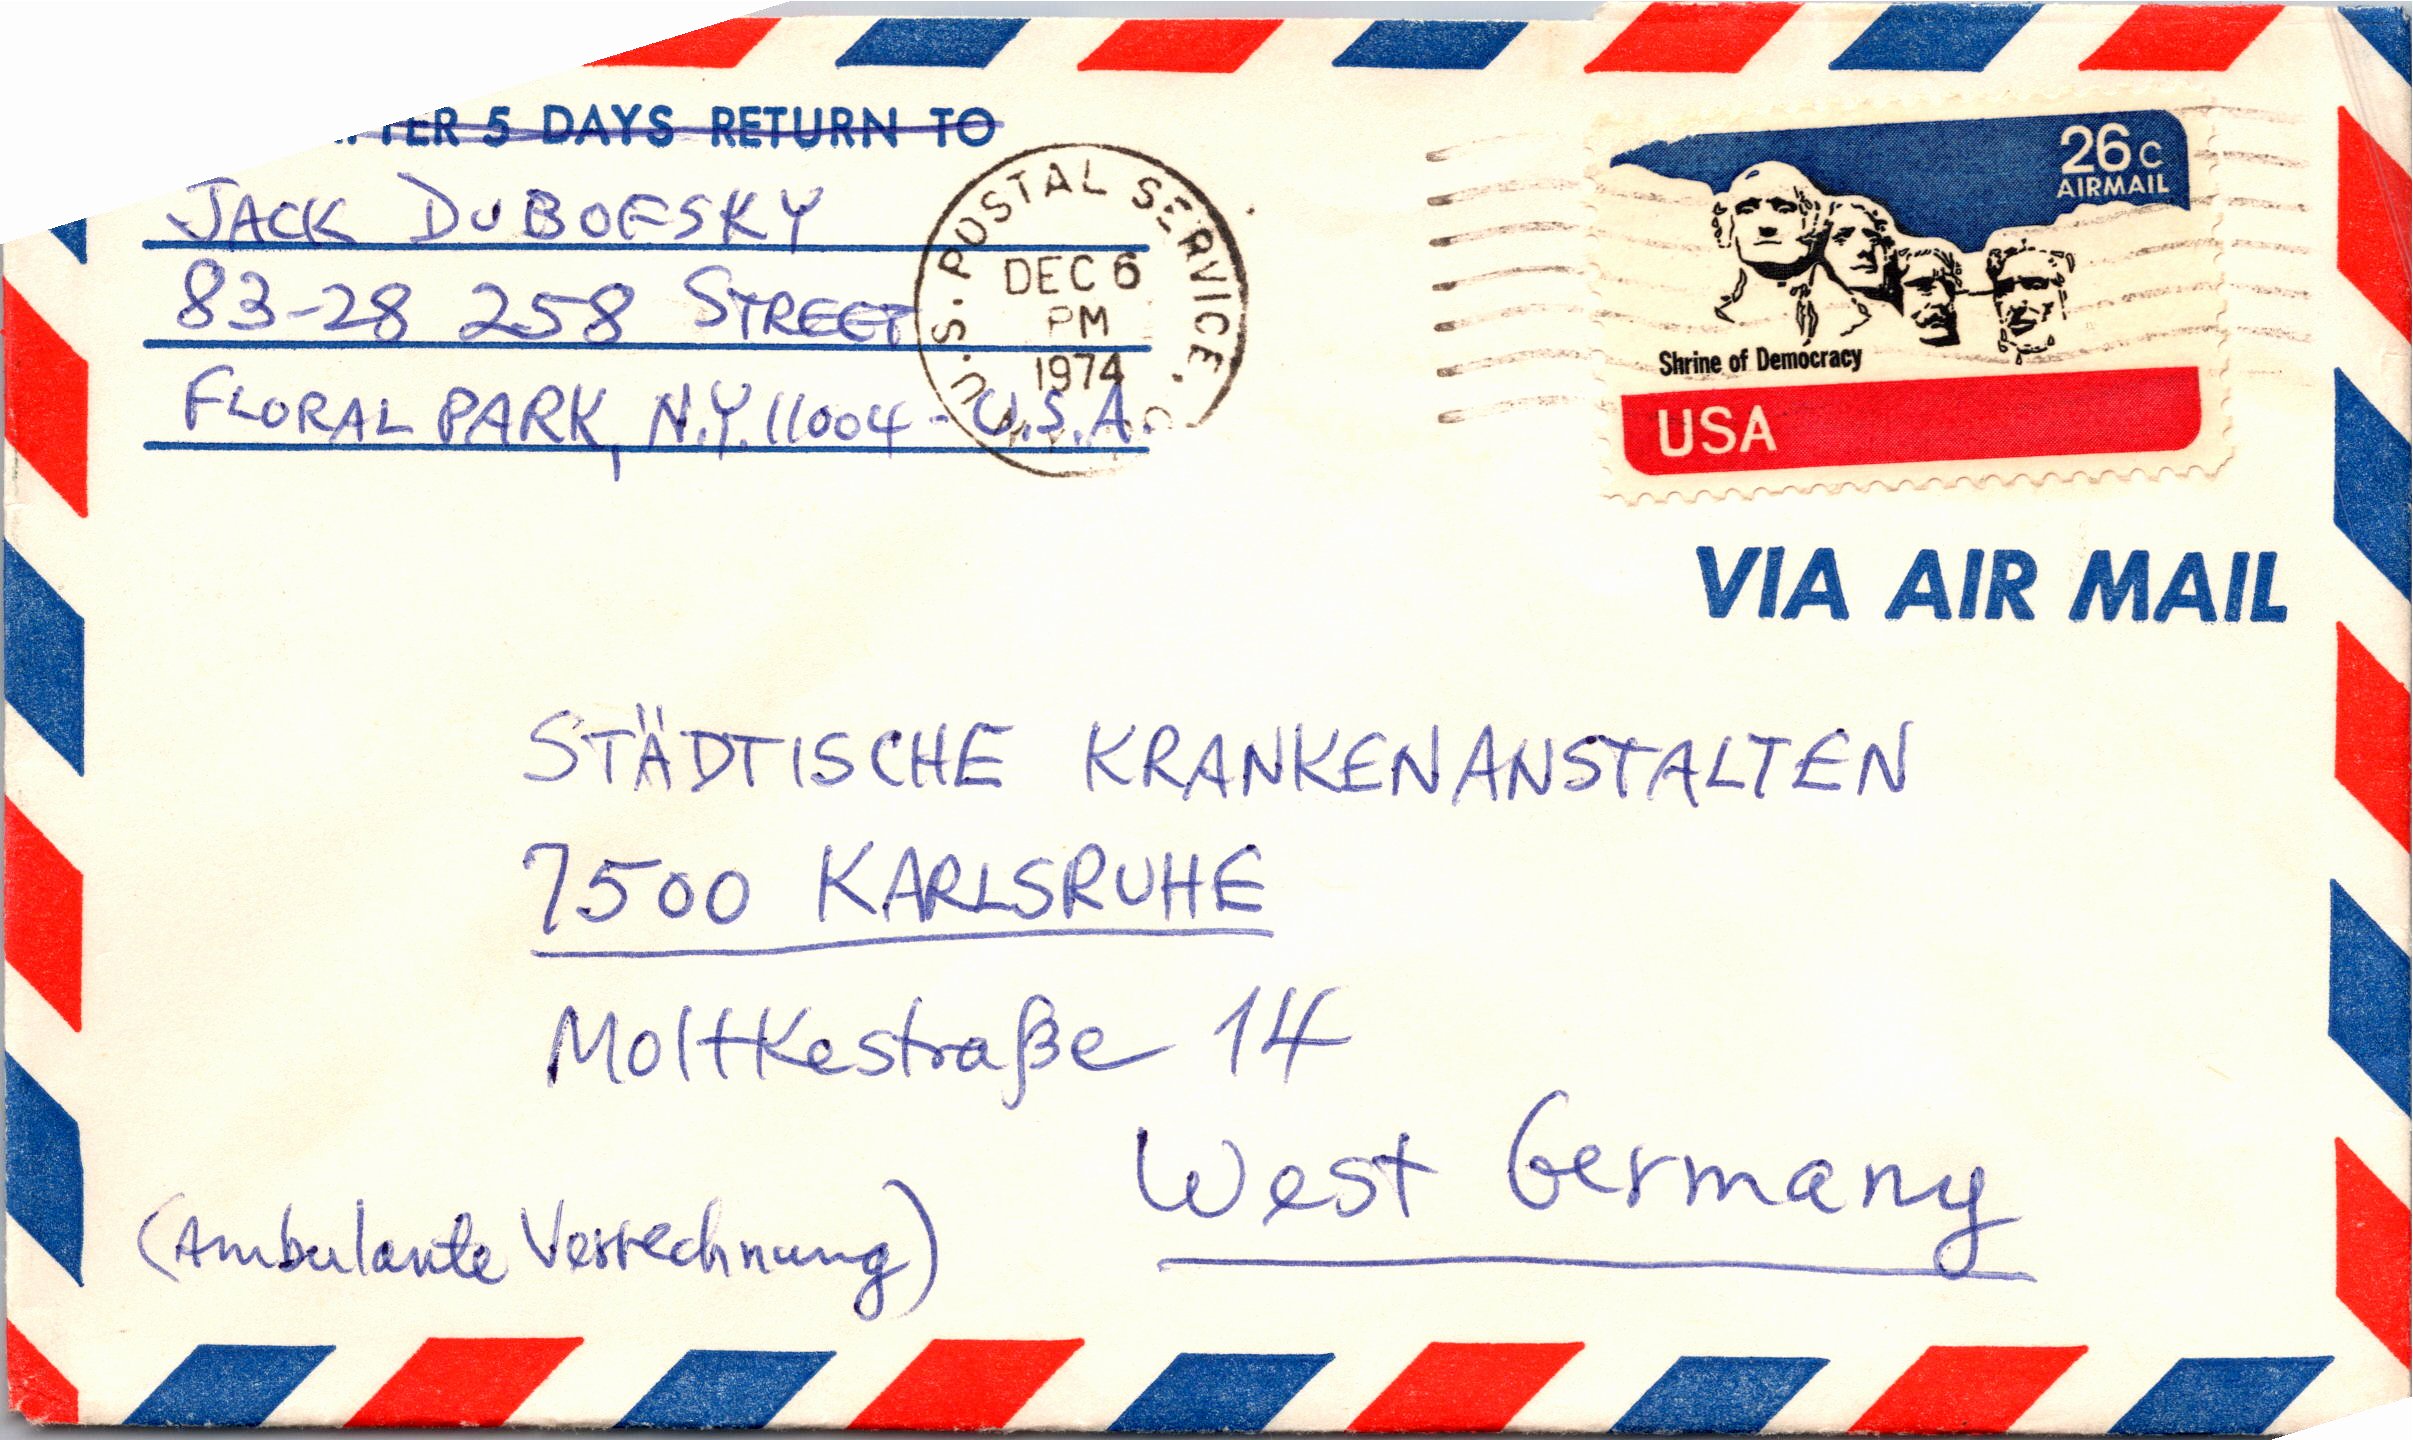 5 DAYS RETURN TO
JACK DUBOFSKY
83-28 258 STREET
FLORAL PARK, N.Y. 11004 - U.S.A.
U.S. POSTAL SERVICE.
DEC 6
PM
1974
26c
AIRMAIL
Shrine of Democracy
USA
VIA AIR MAIL
STÄDTISCHE KRANKENANSTALTEN
7500 KARLSRUHE
Moltkestraße 14
West Germany
(Ambulante Verrechnung)